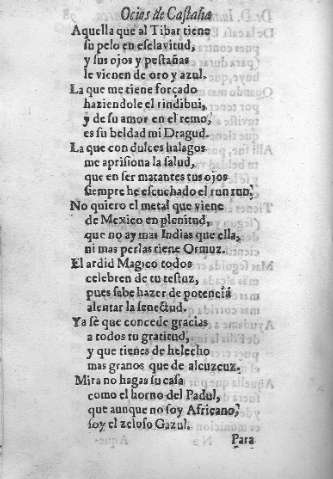 Ocios de Castalia
Aquella que al Tibar tiene
su pelo en esclavitud,
y sus ojos y pestañas
le vienen de oro y azul.
La que me tiene forçado
haziendole el rindibui,
y de su amor en el remo,
es su beldad mi Dragud.
La que con dulces halagos
me aprisiona la salud,
que en ser matantes tus ojos
siempre he escuchado el run run,
No quiero el metal que viene
de Mexico en plenitud,
que no ay mas Indias que ella,
ni mas perlas tiene Ormuz.
El ardid Magico todos
celebren de tu testuz,
pues sabe hazer de potencia
alentar la senectud.
Ya sè que concede gracias
a todos tu gratitud,
y que tienes de helecho
mas granos que de alcuzcuz.
Mira no hagas su casa
como el horno del Padul,
que aunque no soy Africano,
soy el zeloso Gazul.
Para